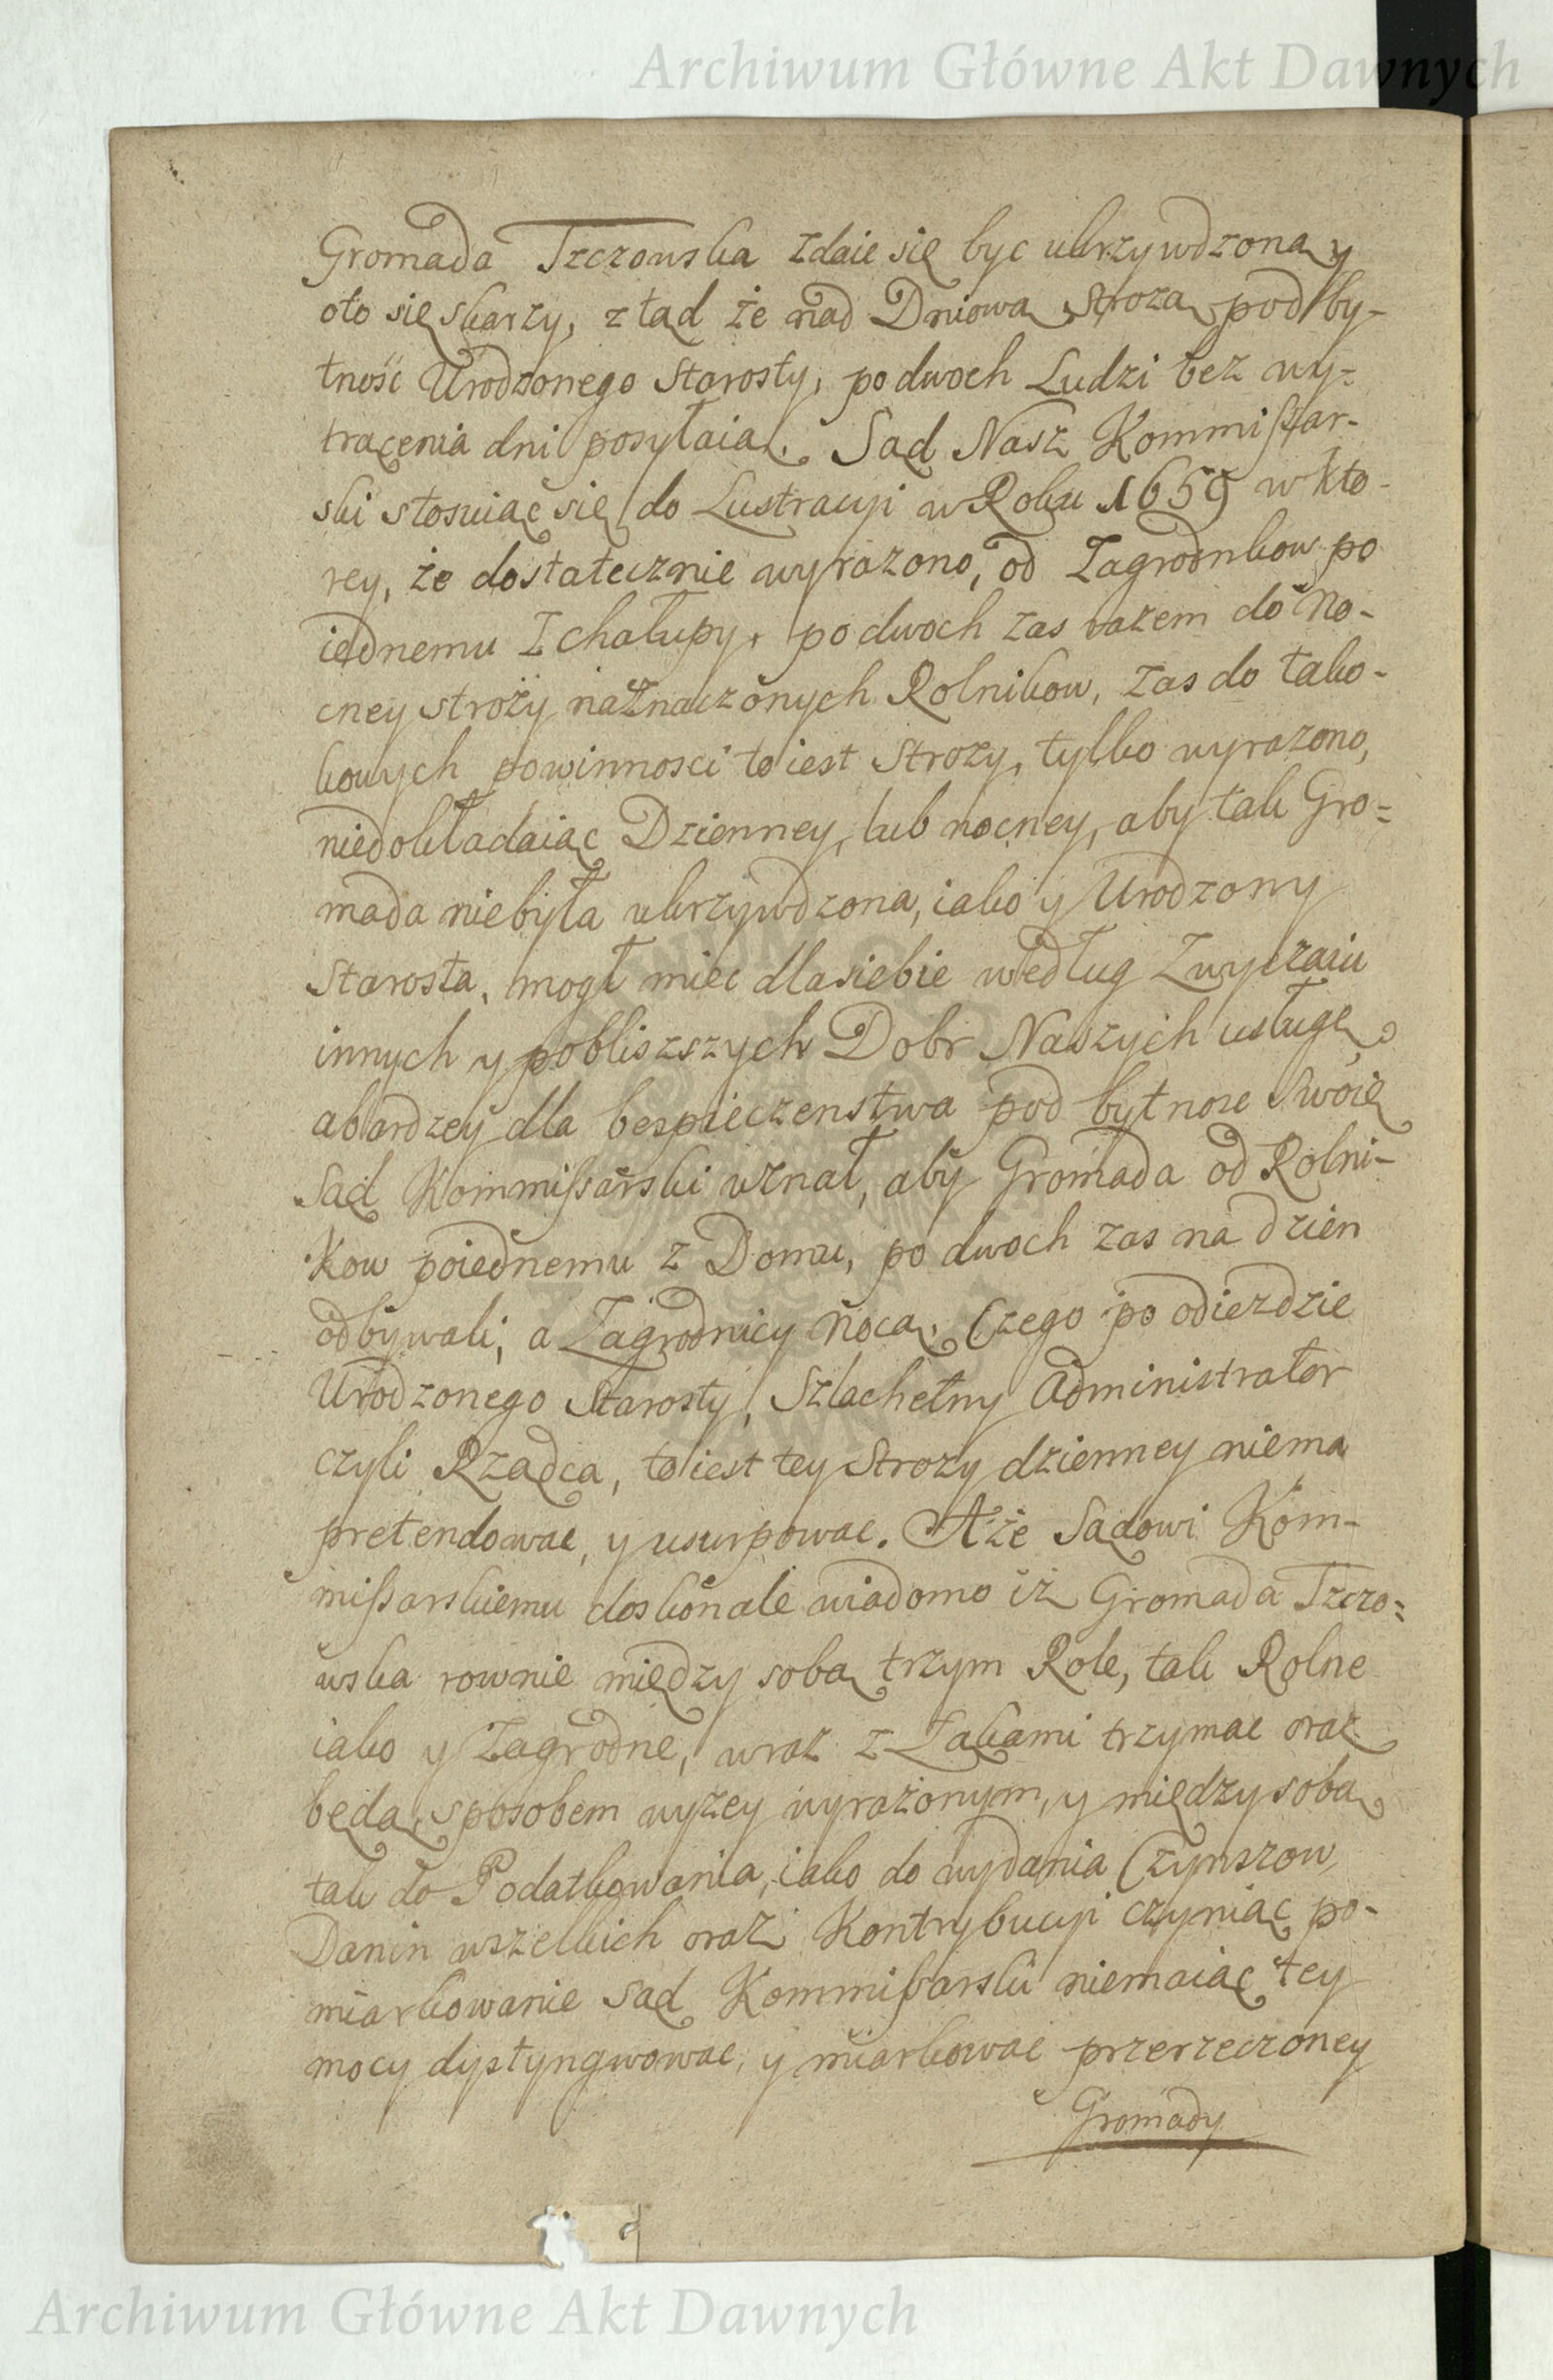 Archiwum Główne Akt Dawnych
Gromada Tzczowska zdaie się byc ukrzywdzona y
oto się skarzy, z tąd że nad Dniową Strożą pod by-
tność Urodzonego Starosty, po dwoch Ludzi bez wy-
trącenia dni posyłaią. Sąd Nasz Kommissar-
ski stosuiąc się do Lustracyi w Roku 1659 w kto-
rey, że dostatecznie wyrażono, od Zagrodnkow po
iednemu z chałupy, po dwoch zas razem do No-
cney stroży naznaczonych Rolnikow, zas do tako-
kowych powinnosci to iest Stroży, tylko wyrażono,
niedokładaiąc Dzienney, lub nocney, aby tak Gro-
mada niebyła ukrzywdzona, iako y Urodzony
Starosta, mogł miec dla siebie według Zwyczaiu
innych y pobliszszych Dobr Naszych usługę,
a bardzey dla bespieczenstwa pod bytnosc Swoię
Sąd Kommissarski uznał, aby Gromada od Rolni-
kow poiednemu z Domu, po dwoch zas na dzien
odbywali, a Zagrodnicy nocą. Czego po odiezdzie
Urodzonego Starosty, Szlachetny Administrator
czyli Rządca, to iest tey Stroży dzienney niema
pretendowac, y usurpowac. A że Sądowi Kom-
missarskiemu doskonale wiadomo iż Gromada Tzczo-
wska rownie między sobą trzym Role, tak Rolne
iako y Zagrodne, wraz z Łąkami trzymac oraz
będą, sposobem wyżey wyrażonym, y między sobą
tak do Podatkowania, iako do wydania Czynszow
Danin wszelkich oraz Kontrybucyi czyniąc po-
miarkowanie Sąd Kommissarski niemaiąc tey
mocy dystyngwowac, y miarkowac przerzeczoney
Gromady
Archiwum Główne Akt Dawnych